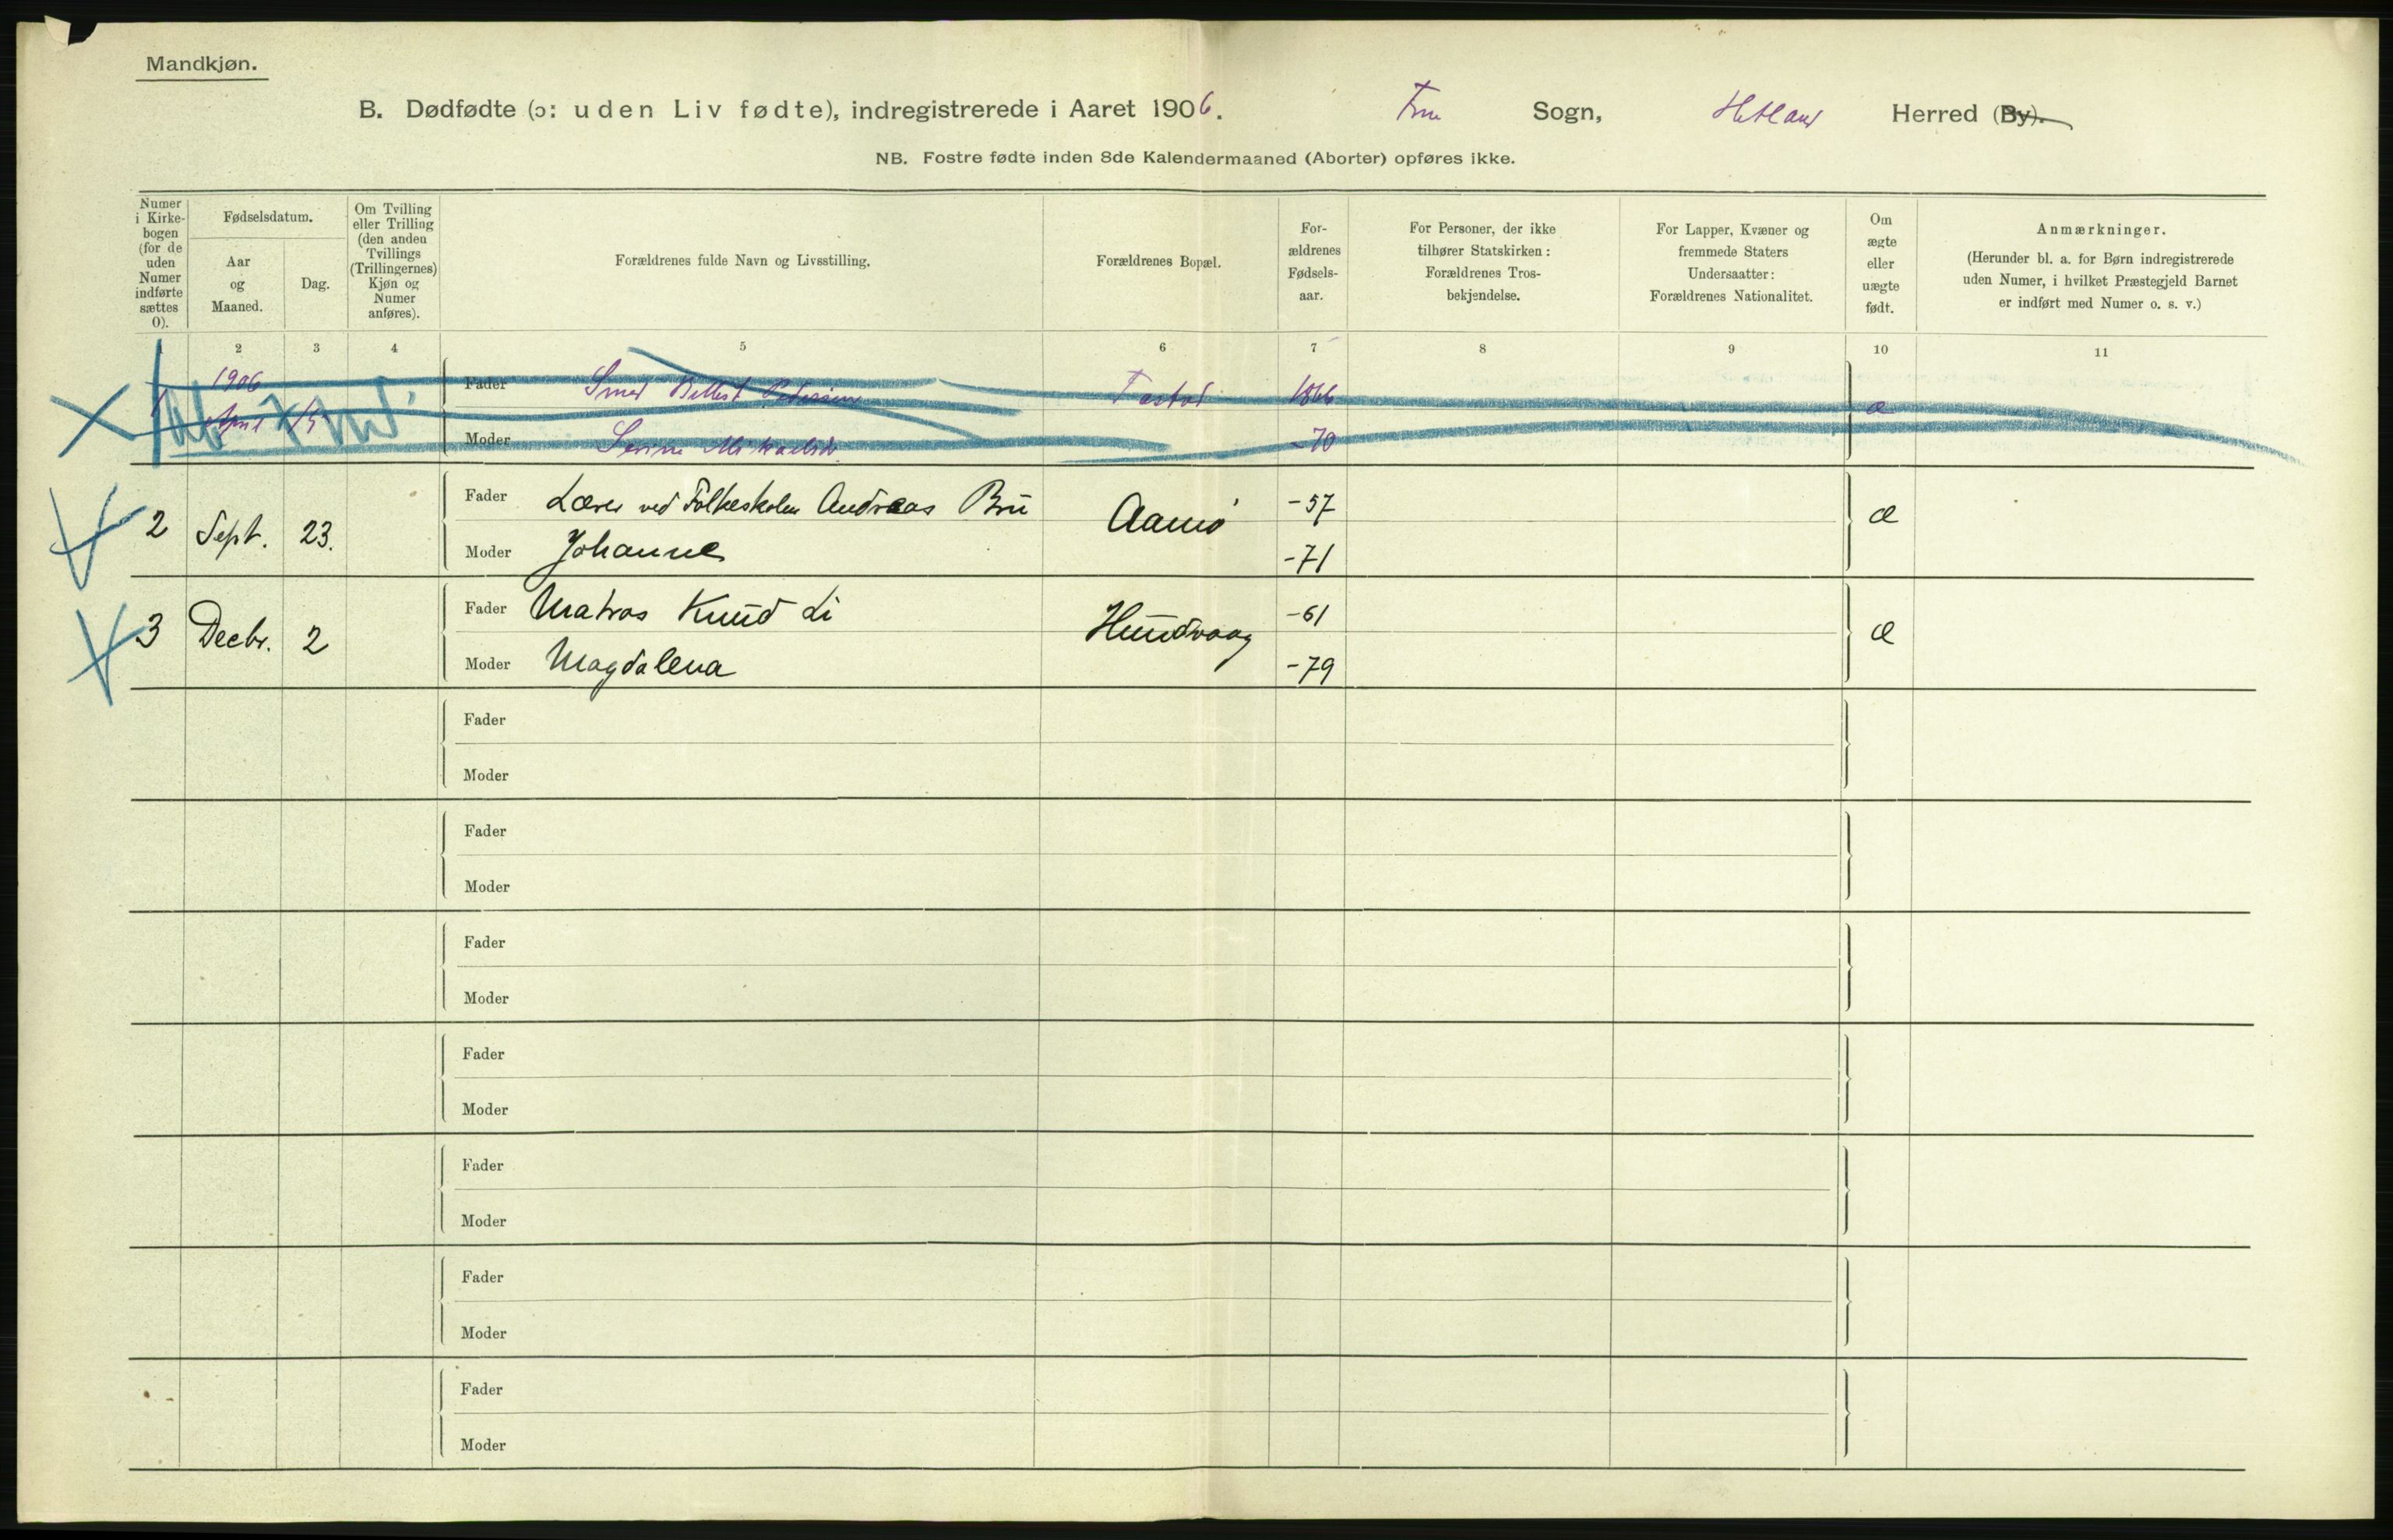 Mandkjøn.
B. Dødfødte (ɔ: uden Liv fødte), indregistrerede i Aaret 1906. Frue Sogn, Hetland Herred (By).
NB. Fostre fødte inden 8de Kalendermaaned (Aborter) opføres ikke.
Numer i Kirke-bogen (for de uden Numer indførte sættes 0).
Fødselsdatum.
Aar og Maaned.
Dag.
Om Tvilling eller Trilling (den anden Tvillings (Trillingernes) Kjøn og Numer anføres).
Forældrenes fulde Navn og Livsstilling.
Forældrenes Bopæl.
For-ældrenes Fødsels-aar.
For Personer, der ikke tilhører Statskirken: Forældrenes Tros-bekjendelse.
For Lapper, Kvæner og fremmede Staters Undersaatter: Forældrenes Nationalitet.
Om ægte eller uægte født.
Anmærkninger.
(Herunder bl. a. for Børn indregistrerede uden Numer, i hvilket Præstegjeld Barnet er indført med Numer o. s. v.)
2 3 4 5 6 7 8 9 10 11
1906
Fader Smed Pedersen Tastad 1866 æ
April
Moder Serine -70
2 Sept. 23. Fader Lærer ved Folkeskolen Andreas Bru Aamø -57 æ
Moder Johanne -71
3 Decbr. 2 Fader Matros Knud Li Hundvaag -61 æ
Moder Magdalena -79
Fader
Moder
Fader
Moder
Fader
Moder
Fader
Moder
Fader
Moder
Fader
Moder
Fader
Moder